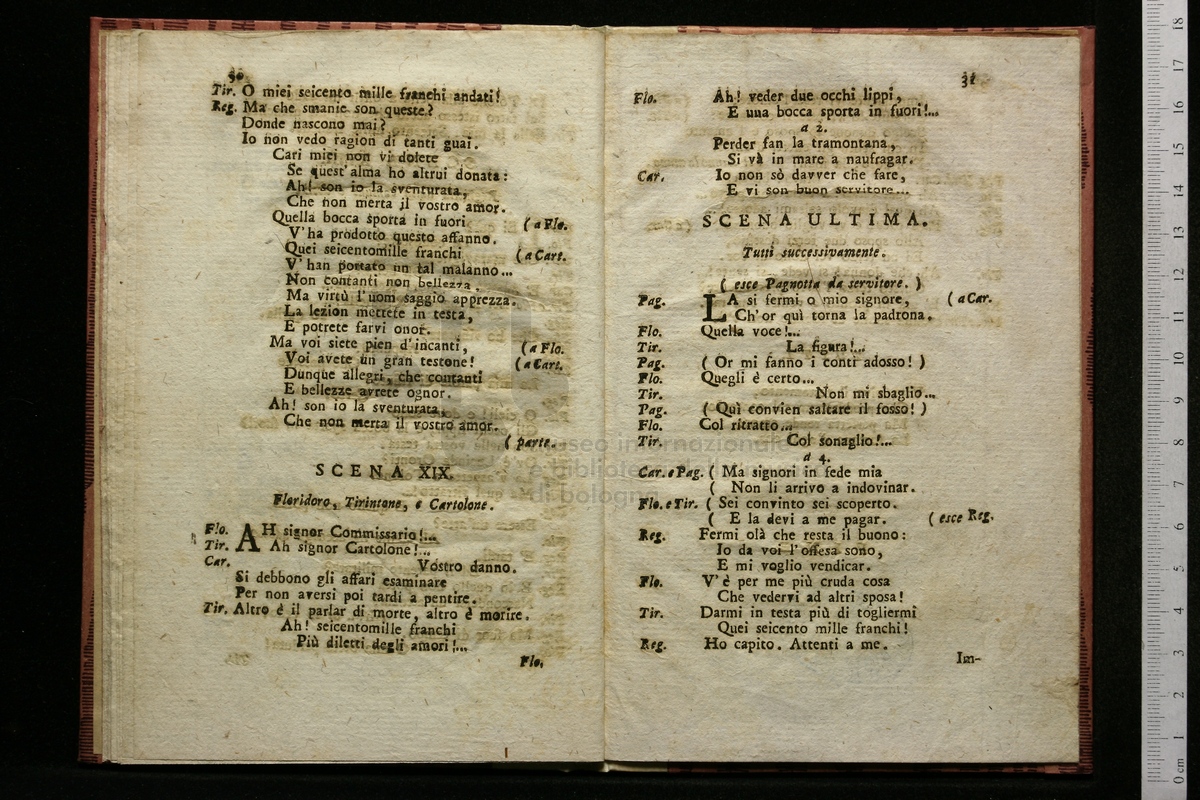 30
Tir. O miei seicento mille franchi andati!
Reg. Ma che smanie son queste?
Donde nascono mai?
Io non vedo ragion di tanti guai.
Cari miei non vi dolete
Se quest'alma ho altrui donata:
Ah! son io la sventurata,
Che non merta il vostro amor.
Quella bocca sporta in fuori (a Flo.
V'ha prodotto questo affanno.
Quei seicentomille franchi (a Cart.
V'han portato un tal malanno...
Non contanti non bellezza,
Ma virtù l'uom saggio apprezza.
La lezion mettete in testa,
E potrete farvi onor.
Ma voi siete pien d'incanti, (a Flo.
Voi avete un gran testone! (a Cart.
Dunque allegri, che contanti
E bellezze avrete ognor.
Ah! son io la sventurata,
Che non merta il vostro amor.
(parte.
SCENA XIX.
Floridoro, Tirintone, e Cartolone.
Flo. AH signor Commissario!...
Tir. Ah signor Cartolone!...
Car. Vostro danno.
Si debbono gli affari esaminare
Per non aversi poi tardi a pentire.
Tir. Altro è il parlar di morte, altro è morire.
Ah! seicentomille franchi
Più diletti degli amori!...
Flo.
31
Flo. Ah! veder due occhi lippi,
E una bocca sporta in fuori!...
a 2.
Perder fan la tramontana,
Si và in mare a naufragar.
Car. Io non sò davver che fare,
E vi son buon servitore...
SCENA ULTIMA.
Tutti successivamente.
(esce Pagnotta da servitore.)
Pag. LA si fermi o mio signore, (a Car.
Ch'or quì torna la padrona.
Flo. Quella voce!...
Tir. La figura!...
Pag. (Or mi fanno i conti adosso!)
Flo. Quegli è certo...
Tir. Non mi sbaglio...
Pag. (Quì convien saltare il fosso!)
Flo. Col ritratto...
Tir. Col sonaglio!...
a 4.
Car. e Pag. (Ma signori in fede mia
(Non li arrivo a indovinar.
Flo. e Tir. (Sei convinto sei scoperto.
(E la devi a me pagar. (esce Reg.
Reg. Fermi olà che resta il buono:
Io da voi l'offesa sono,
E mi voglio vendicar.
Flo. V'è per me più cruda cosa
Che vedervi ad altri sposa!
Tir. Darmi in testa più di togliermi
Quei seicento mille franchi!
Reg. Ho capito. Attenti a me.
Im-
museo internazionale
e biblioteca
di bologna
0 cm 1 2 3 4 5 6 7 8 9 10 11 12 13 14 15 16 17 18